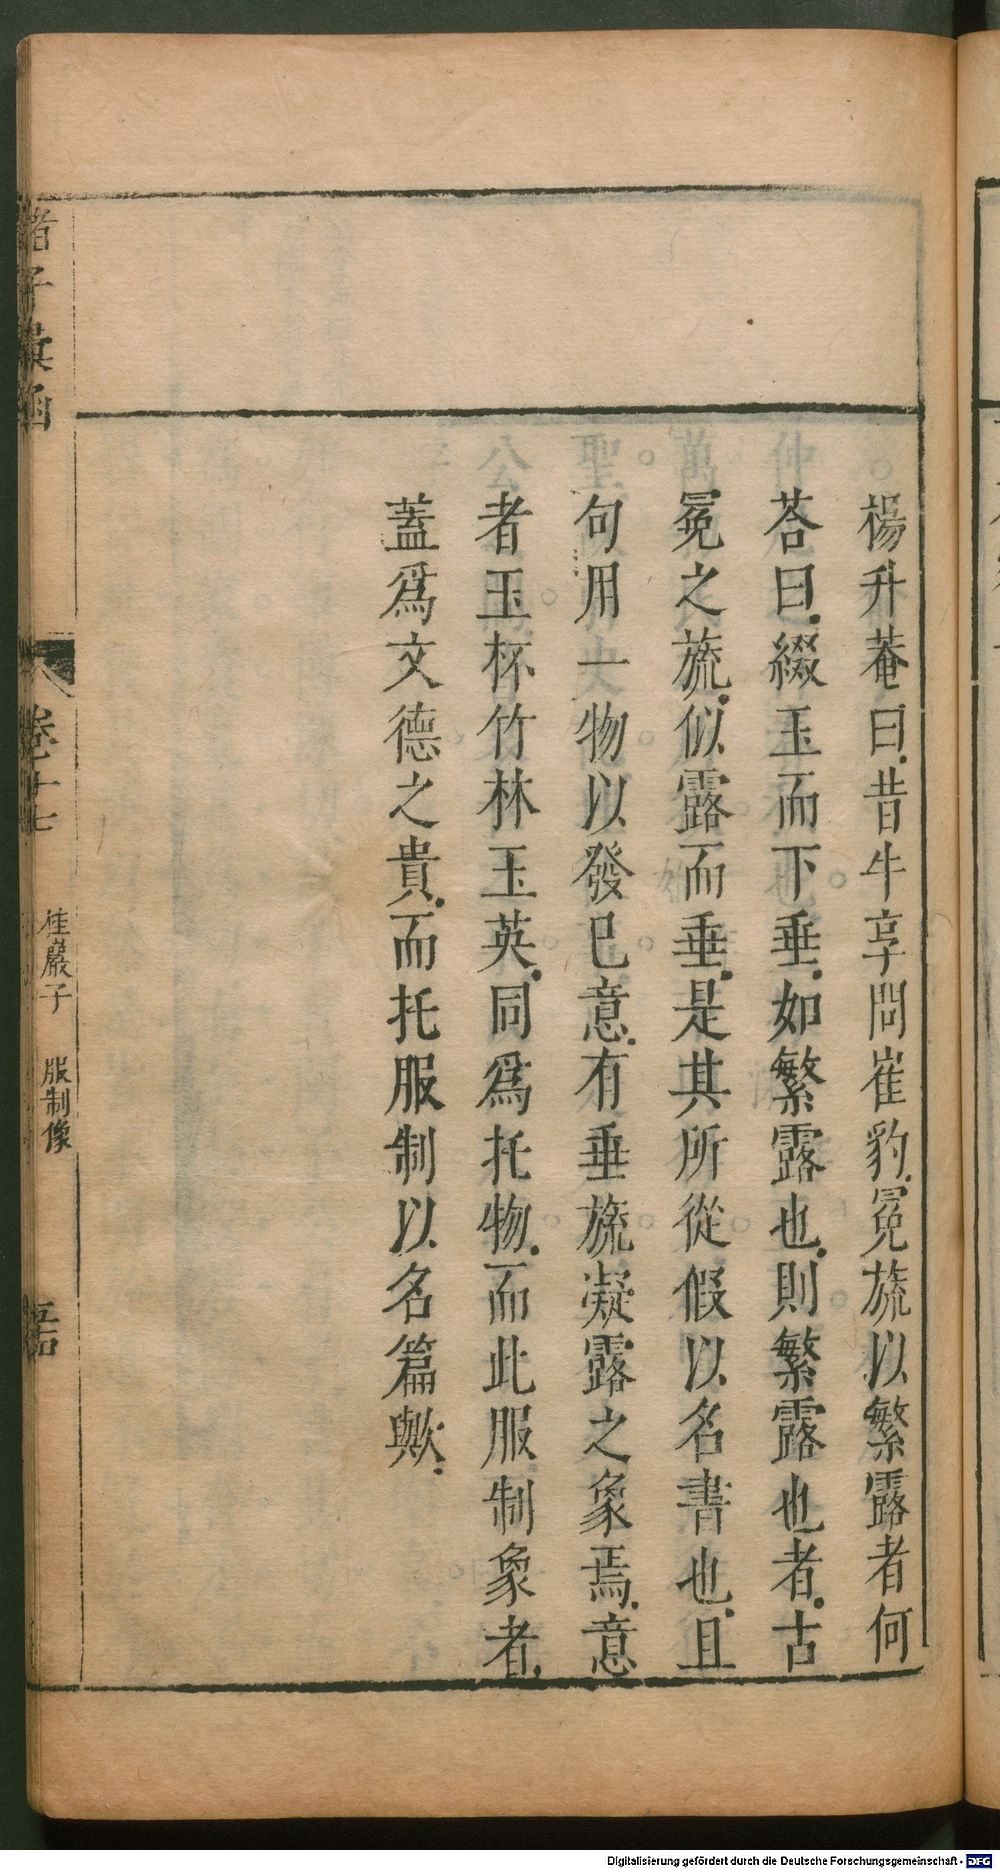 楊升菴曰.昔牛享問崔豹.冕旒以繁露者何
荅曰.綴玉而下垂.如繁露也.則繁露也者.古
冕之旒.似露而垂.是其所從假以名書也.且
句用一物以發已意.有垂旒凝露之象焉.意
者玉杯竹林玉英.同爲托物.而此服制象者.
蓋爲文德之貴.而托服制以名篇歟.
諸子彚函 卷十七 桂巖子 服制像
Digitalisierung gefördert durch die Deutsche Forschungsgemeinschaft - DFG